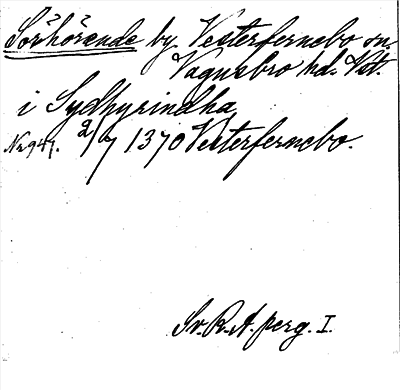 Sörhörende by, Vesterfernebo sn.
Vagnsbro hd. Vstl.
i Sydhyrindha
Nr 941. 2/7 1370 Vesterfernebo.
Sv. R. A. perg. I.